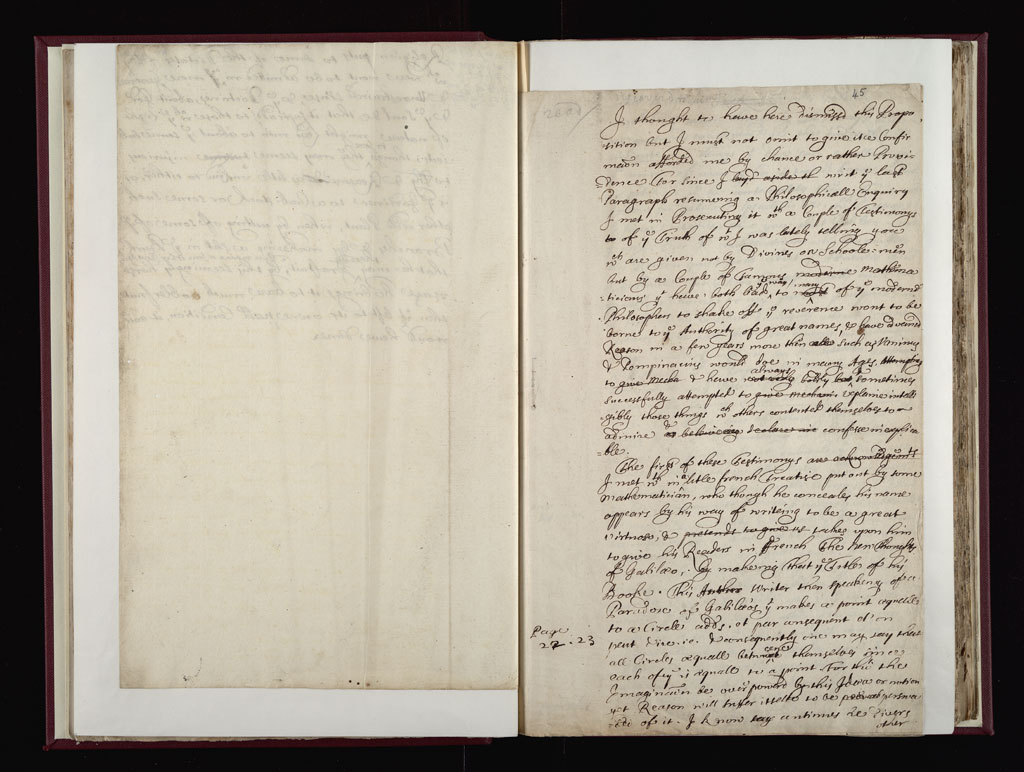 45
I thought to have here dismisst this Propo-
sition but I must not omit to give it ye Confir-
macōn afforded me by chance or rather Provi-
=dence (for since I layd aside th writ ye last
Paragraph resumeing a Philosophicall Enquiry
I met in Prosecuting it wth a Couple of Testimonys
to of ye Truth of wt I was lately telling you
wch are given not by Divines or Schoole-men
but by a Couple of Famous moderne Mathema
-ticians yt have both bad, to many of ye modern
Philosophers to shake off ye reverence wont to be
borne to ye Authority of great names, & have advanc'd
Reason in a few years more than all such as Vaninus
& Pomponacius would doe in many Ages, Attempting
to give Mecha & have always boldly & sometimes
successfully attempted to give mechani explaine intelli
gibly those things wch others contented themselves to
admire & beleiveing declare confesse inexplica
=ble.
The first of these Testimonys
I met wth in a little french Treatise put out by some
Mathematician, who though he conceales his name
appears by his way of writeing to be a great
virtuoso, & pretends to give us takes upon him
to give his Readers in ffrench The New Thoughts
of Galilæo, by makeing that ye Title of his
Booke. This Author Writer then speaking of a
Paradoxe of Galilæos, yt makes a point æquall
to a Circle adds, et par consequent l'on
peut dire. &c. & consequently one may say that
all Circles æquall between themselves since
each of ym is equall to a point. For tho the
Imaginacōn be over powred by this Idæa or notion
yet Reason will suffer itselfe to be perswa
-ded of it. I know say continues he divers
other
Page
22 . 23